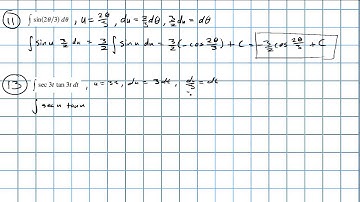 11 ∫ sin(2θ/3) dθ , u = 2θ/3 , du = 2/3 dθ , 3/2 du = dθ
∫ sin u 3/2 du = 3/2 ∫ sin u du = 3/2 (-cos 2θ/3) + C = -3/2 cos 2θ/3 + C
13 ∫ sec 3t tan 3t dt , u = 3t , du = 3 dt , du/3 = dt
∫ sec u tan u